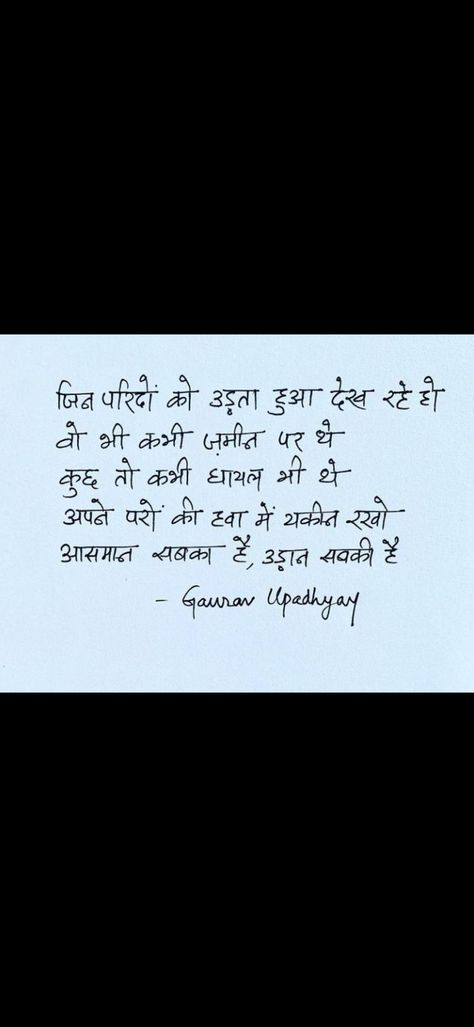 जिन परिदों को उड़ता हुआ देख रहे हो
वो भी कभी ज़मीन पर थे
कुछ तो कभी घायल भी थे
अपने परों की हवा में यकीन रखो
आसमान सबका है, उड़ान सबकी है
- Gaurav Upadhyay